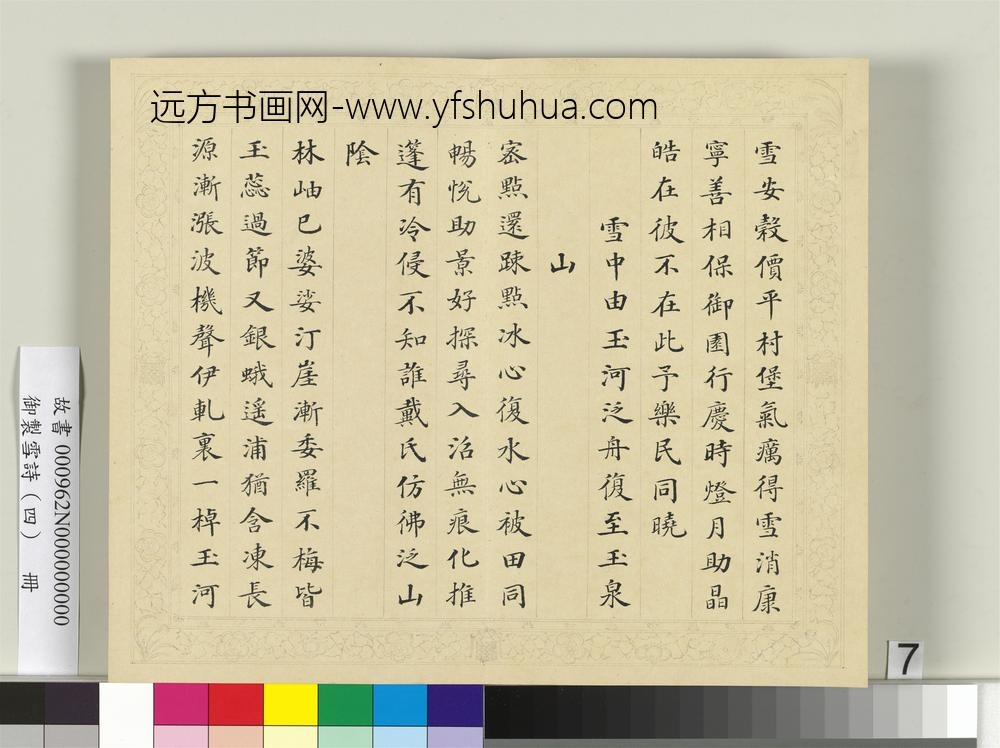 远方书画网-www.yfshuhua.com
雪安穀價平村堡氣癘得雪消康
寧善相保御園行慶時燈月助晶
皓在彼不在此予樂民同曉
雪中由玉河泛舟復至玉泉
山
密點還踈點冰心復水心被田同
暢悅助景好探尋入沼無痕化推
蓬有冷侵不知誰戴氏仿彿泛山
陰
林岫已婆娑汀崖漸委羅不梅皆
玉蕊過節又銀蛾遥浦猶含凍長
源漸漲波機聲伊軋裏一棹玉河
故書 000962N000000000
御製雪詩(四) 冊
7